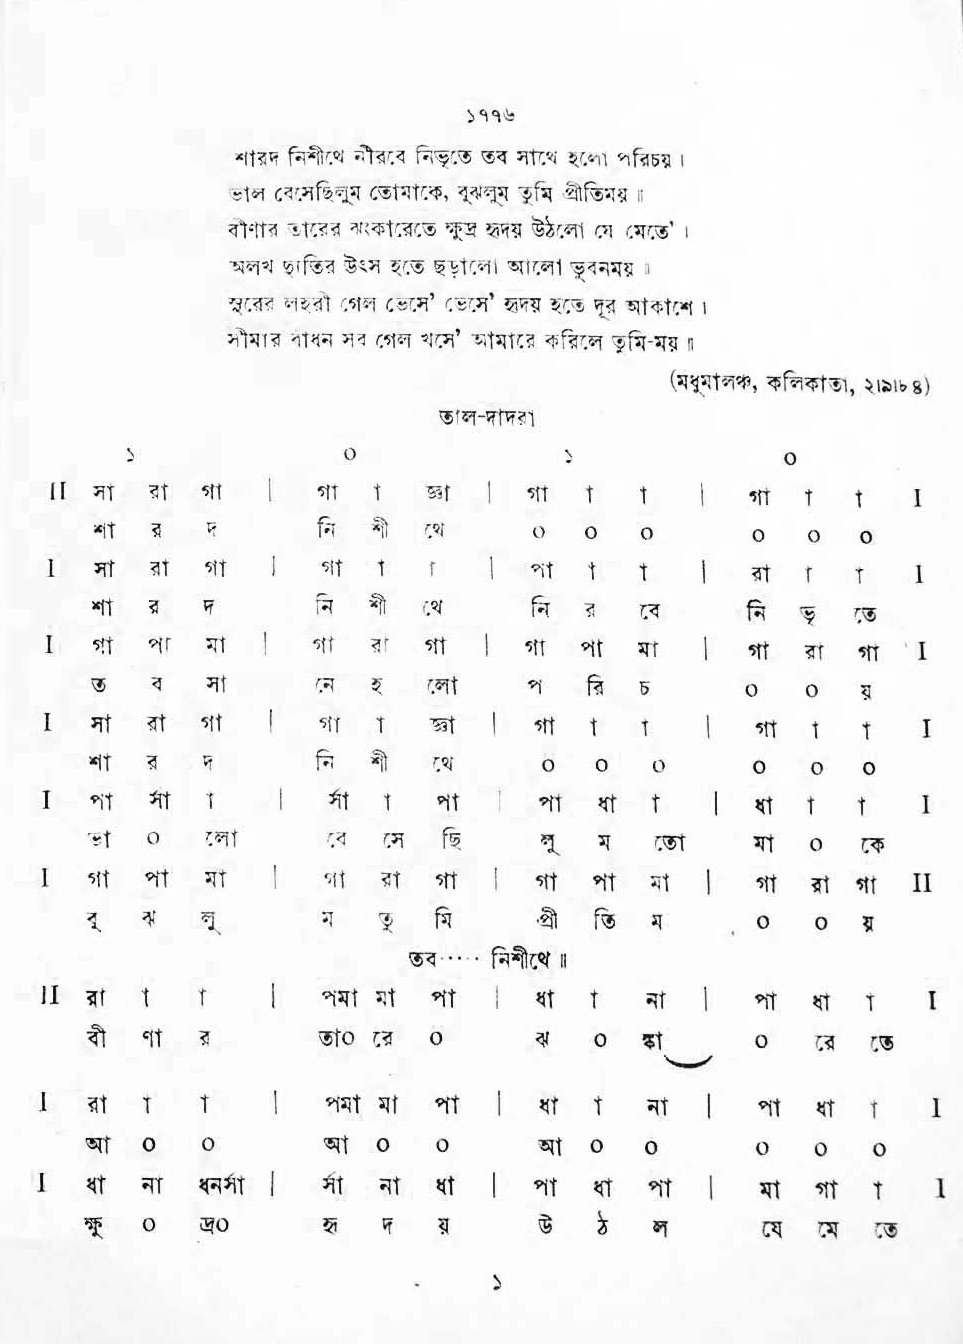 ১৭৭৬
শারদ নিশীথে নীরবে নিভৃতে তব সাথে হলো পরিচয় ।
ভাল বেসেছিলুম তোমাকে, বুঝলুম তুমি প্রীতিময় ॥
বীণার তারের ঝংকারেতে ক্ষুদ্র হৃদয় উঠলো যে মেতে’ ।
অলখ দ্যুতির উৎস হতে ছড়ালো আলো ভুবনময় ॥
সুরের লহরী গেল ভেসে’ ভেসে’ হৃদয় হতে দূর আকাশে ।
সীমার বাধন সব গেল খসে’ আমারে করিলে তুমি-ময় ॥
(মধুমালঞ্চ, কলিকাতা, ২।৯।৮৪)
তাল-দাদরা
১ ০ ১ ০
II সা রা গা | গা া জ্ঞা | গা া া | গা া া I
শা র দ নি শী থে ০ ০ ০ ০ ০ ০
I সা রা গা | গা া া | পা া া | রা া া I
শা র দ নি শী থে নি র বে নি ভৃ তে
I গা পা মা | গা রা গা | গা পা মা | গা রা গা I
ত ব সা নে হ লো প রি চ ০ ০ য়
I সা রা গা | গা া জ্ঞা | গা া া | গা া া I
শা র দ নি শী থে ০ ০ ০ ০ ০ ০
I পা র্সা া | র্সা া পা | পা ধা া | ধা া া I
ভা ০ লো বে সে ছি লু ম তো মা ০ কে
I গা পা মা | গা রা গা | গা পা মা | গা রা গা II
বু ঝ লু ম তু মি প্রী তি ম ০ ০ য়
তব····· নিশীথে ॥
II রা া া | পমা মা পা | ধা া না | পা ধা া I
বী ণা র তা০ রে ০ ঝ ০ ঙ্কা ০ রে তে
I রা া া | পমা মা পা | ধা া না | পা ধা া I
আ ০ ০ আ ০ ০ আ ০ ০ ০ ০ ০
I ধা না ধনর্সা | র্সা না ধা | পা ধা পা | মা গা া I
ক্ষু ০ দ্র০ হৃ দ য় উ ঠ ল যে মে তে
১